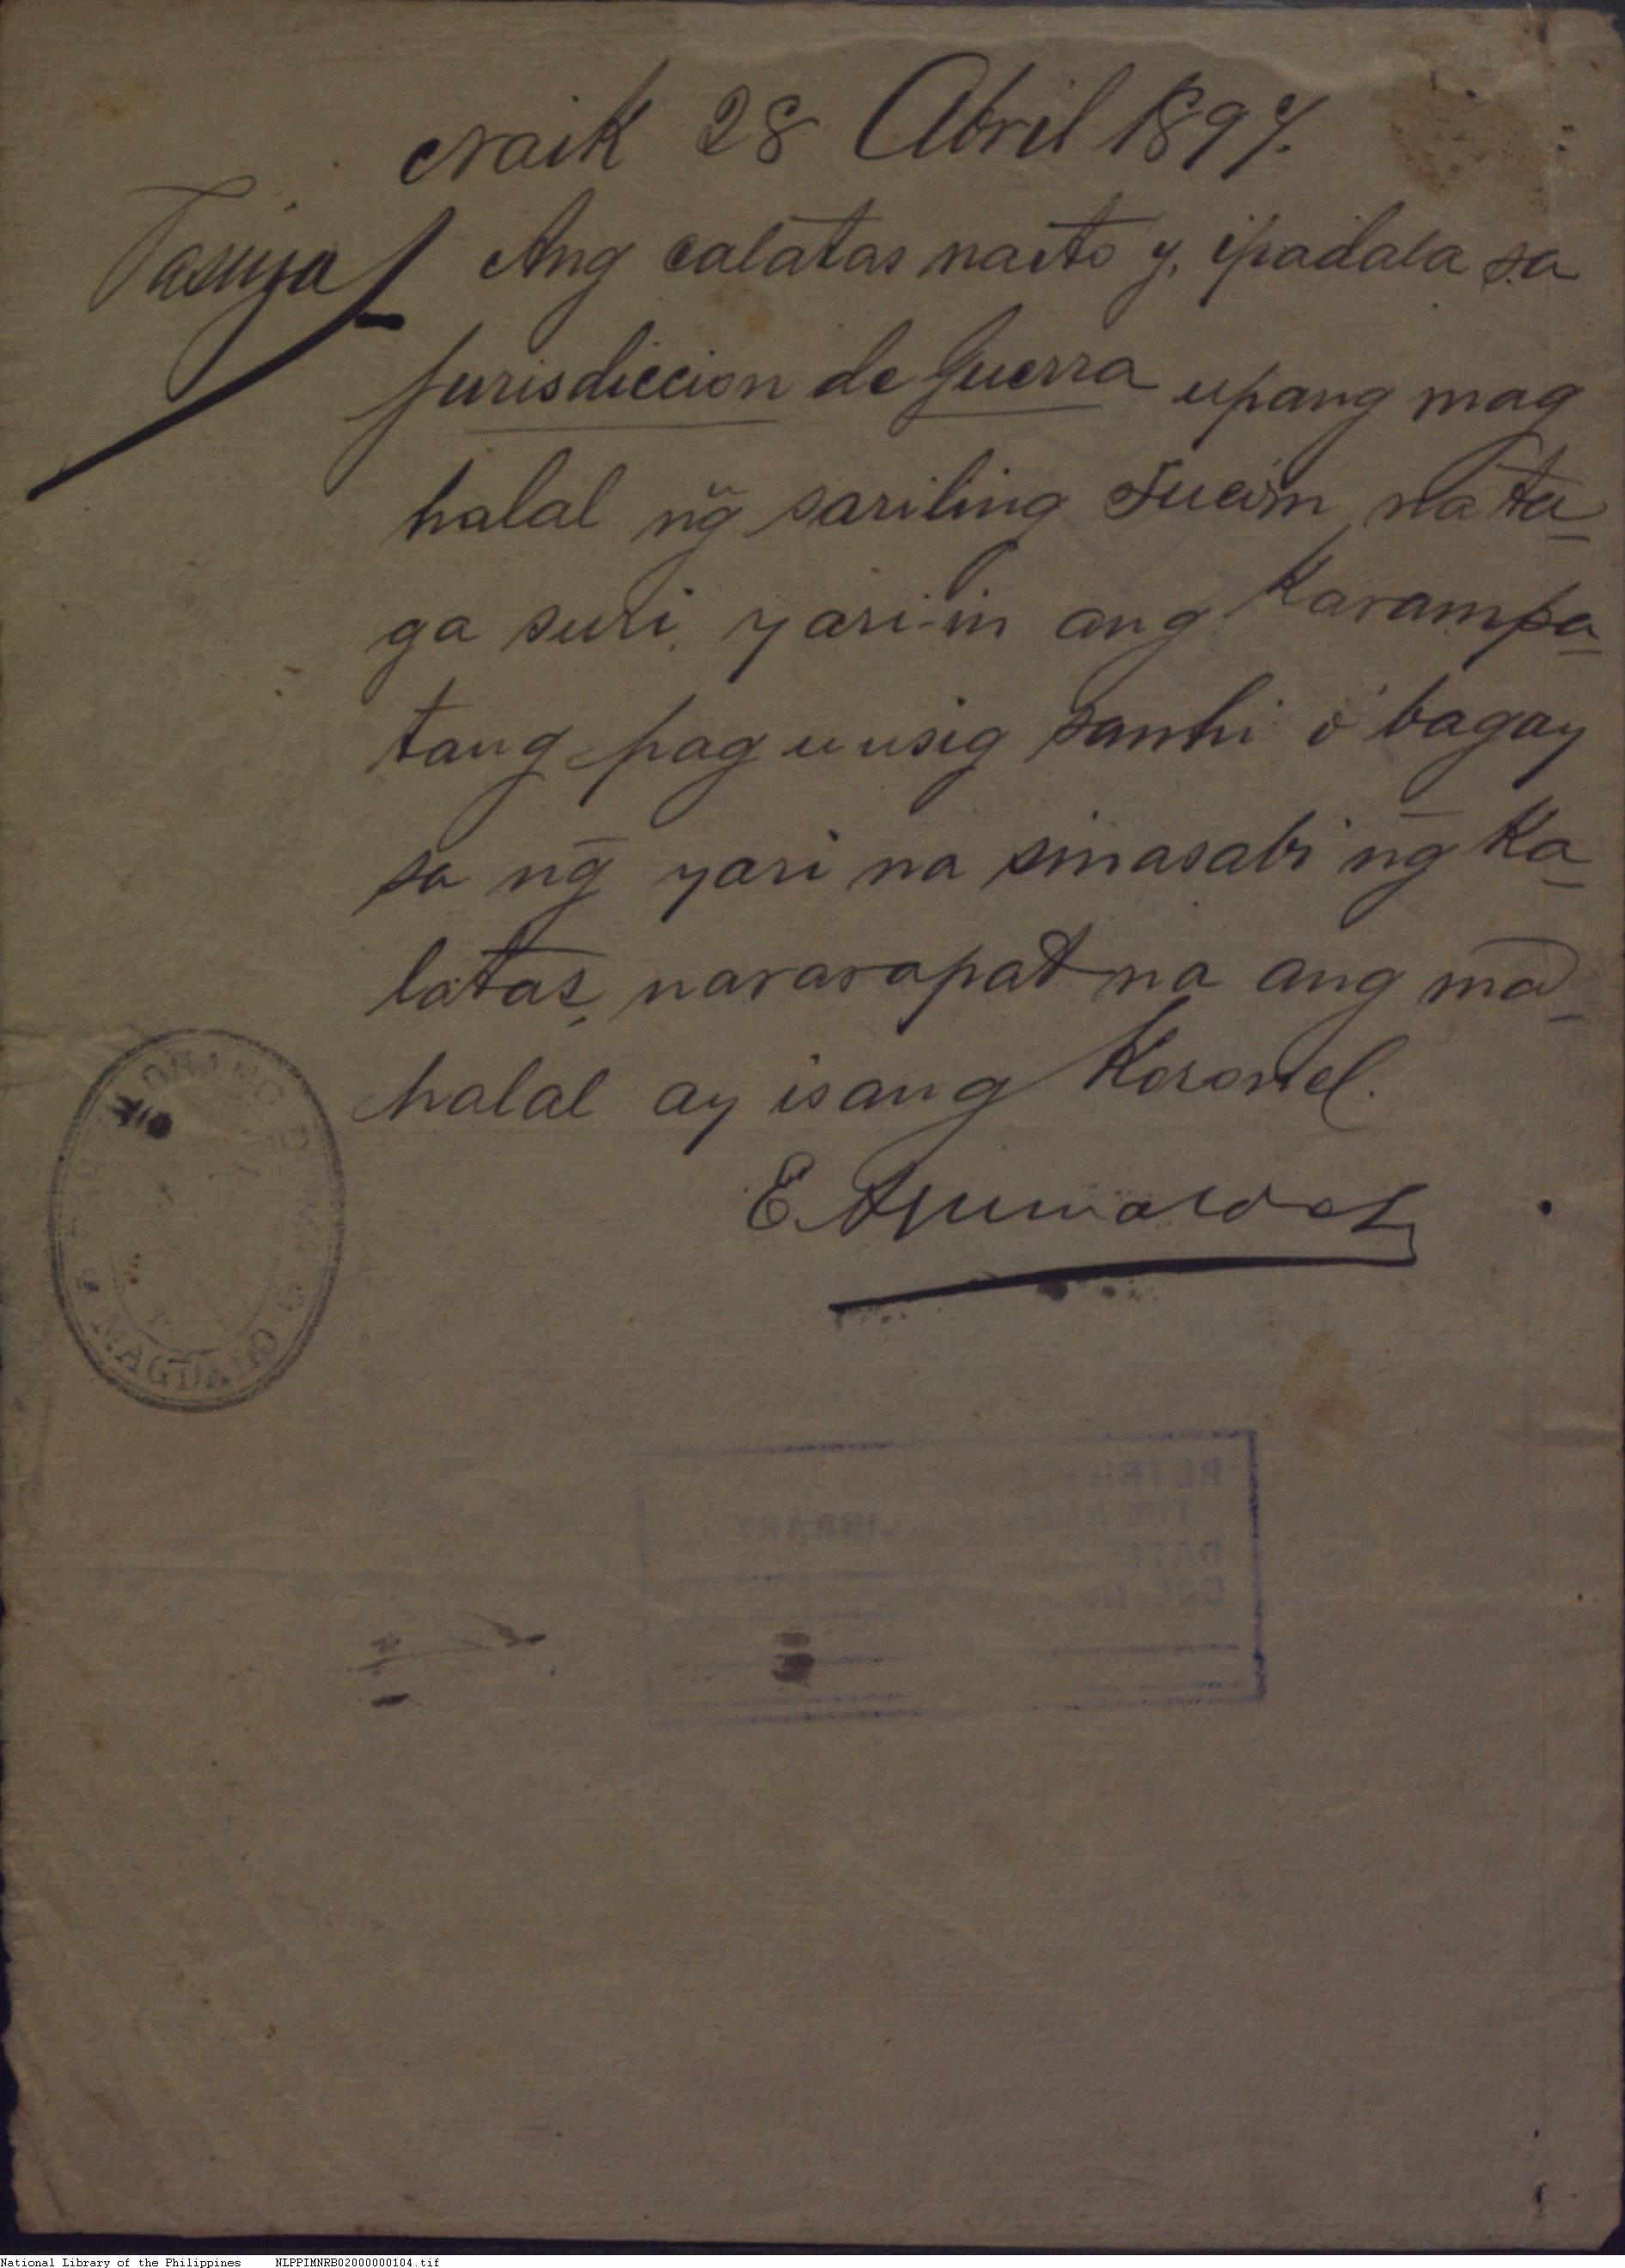 Naik 28 Abril 1897.
Ang calatas naito y, ipadala sa
Jurisdiccion de Guerra upang mag
halal n͠g sariling Fucom na ta-
ga suri, yari-in ang karampa-
tang paguusig sanhi ó bagay
sa n͠g yari na sinasabi n͠g ka-
latas, nararapat na ang ma-
halal ay isang Koronel.
E. Aguinaldo
MAGDALO
LIBRARY
DATE
National Library of the Philippines NLPPIMNRB02000000104.tif